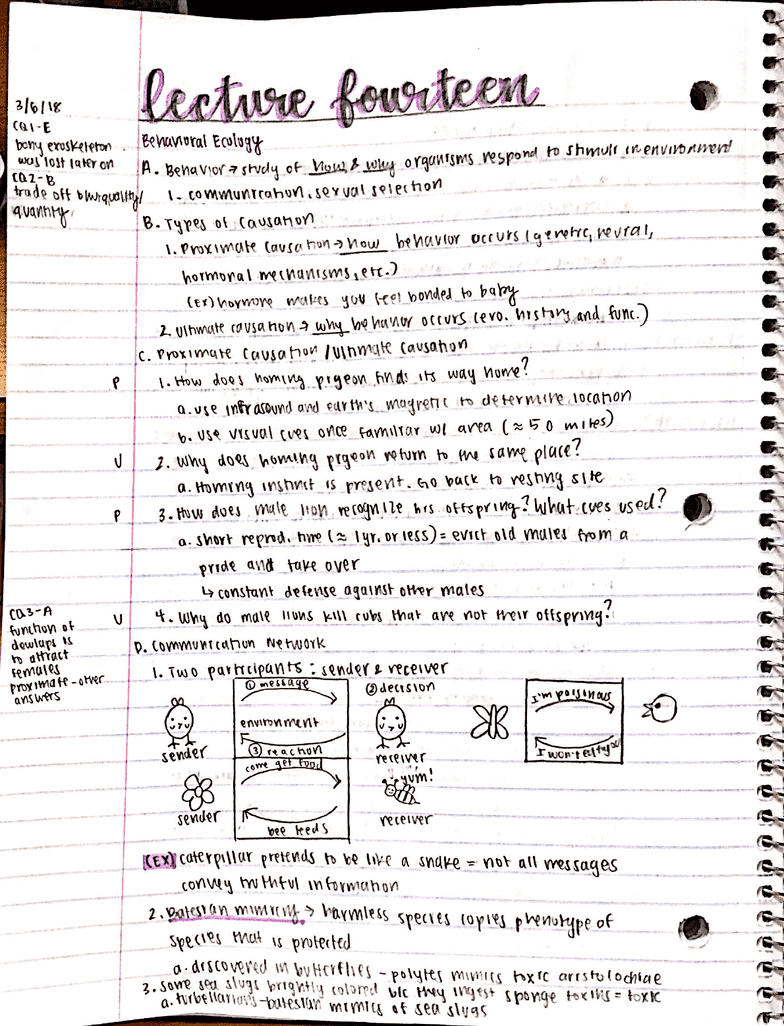 lecture fourteen
3/6/18
CQ1-E
bony exoskeleton
was lost later on
CQ2-B
trade off b/w quality/
quantity
Behavioral Ecology
A. Behavior → study of how & why organisms respond to stimuli in environment
1. communication, sexual selection
B. Types of Causation
1. Proximate causation → how behavior occurs (genetic, neural,
hormonal mechanisms, etc.)
(Ex) hormone makes you feel bonded to baby
2. Ultimate causation → why behavior occurs (evo. history and func.)
C. Proximate Causation / Ultimate Causation
P 1. How does homing pigeon finds its way home?
a. use infrasound and earth's magnetic to determine location
b. use visual cues once familiar w/ area (≈ 50 miles)
U 2. Why does homing pigeon return to the same place?
a. Homing instinct is present. Go back to nesting site
P 3. How does male lion recognize his offspring? What cues used?
a. short reprod. time (≈ 1yr. or less) = evict old males from a
pride and take over
↳ constant defense against other males
U 4. Why do male lions kill cubs that are not their offspring?
CQ3-A
function of
dewlaps is
to attract
females
proximate - other
answers
D. Communication Network
1. Two participants: sender & receiver
① message
② decision
environment
③ reaction
sender
receiver
I'm poisonous
I won't eat you
come get food
yum!
bee feeds
sender
receiver
(EX) caterpillar pretends to be like a snake = not all messages
convey truthful information
2. Batesian mimicry → harmless species copies phenotype of
species that is protected
a. discovered in butterflies - polytes mimics toxic aristolochiae
3. some sea slugs brightly colored b/c they ingest sponge toxins = toxic
a. turbellarians - batesian mimics of sea slugs